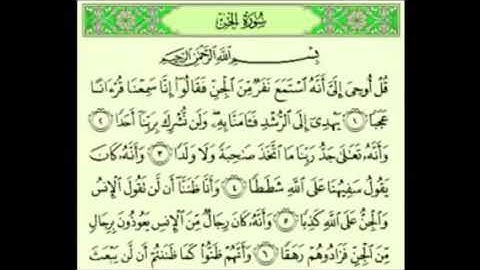 سُورَةُ الْجِنِّ
بِسْمِ اللَّهِ الرَّحْمَٰنِ الرَّحِيمِ
قُلْ أُوحِيَ إِلَيَّ أَنَّهُ ٱسْتَمَعَ نَفَرٌ مِّنَ ٱلْجِنِّ فَقَالُوٓا۟ إِنَّا سَمِعْنَا قُرْءَانًا
عَجَبًا ١ يَهْدِىٓ إِلَى ٱلرُّشْدِ فَـَٔامَنَّا بِهِۦ وَلَن نُّشْرِكَ بِرَبِّنَآ أَحَدًا ٢
وَأَنَّهُۥ تَعَٰلَىٰ جَدُّ رَبِّنَا مَا ٱتَّخَذَ صَٰحِبَةً وَلَا وَلَدًا ٣ وَأَنَّهُۥ كَانَ
يَقُولُ سَفِيهُنَا عَلَى ٱللَّهِ شَطَطًا ٤ وَأَنَّا ظَنَنَّآ أَن لَّن تَقُولَ ٱلْإِنسُ
وَٱلْجِنُّ عَلَى ٱللَّهِ كَذِبًا ٥ وَأَنَّهُۥ كَانَ رِجَالٌ مِّنَ ٱلْإِنسِ يَعُوذُونَ بِرِجَالٍ
مِّنَ ٱلْجِنِّ فَزَادُوهُمْ رَهَقًا ٦ وَأَنَّهُمْ ظَنُّوا۟ كَمَا ظَنَنتُمْ أَن لَّن يَبْعَثَ